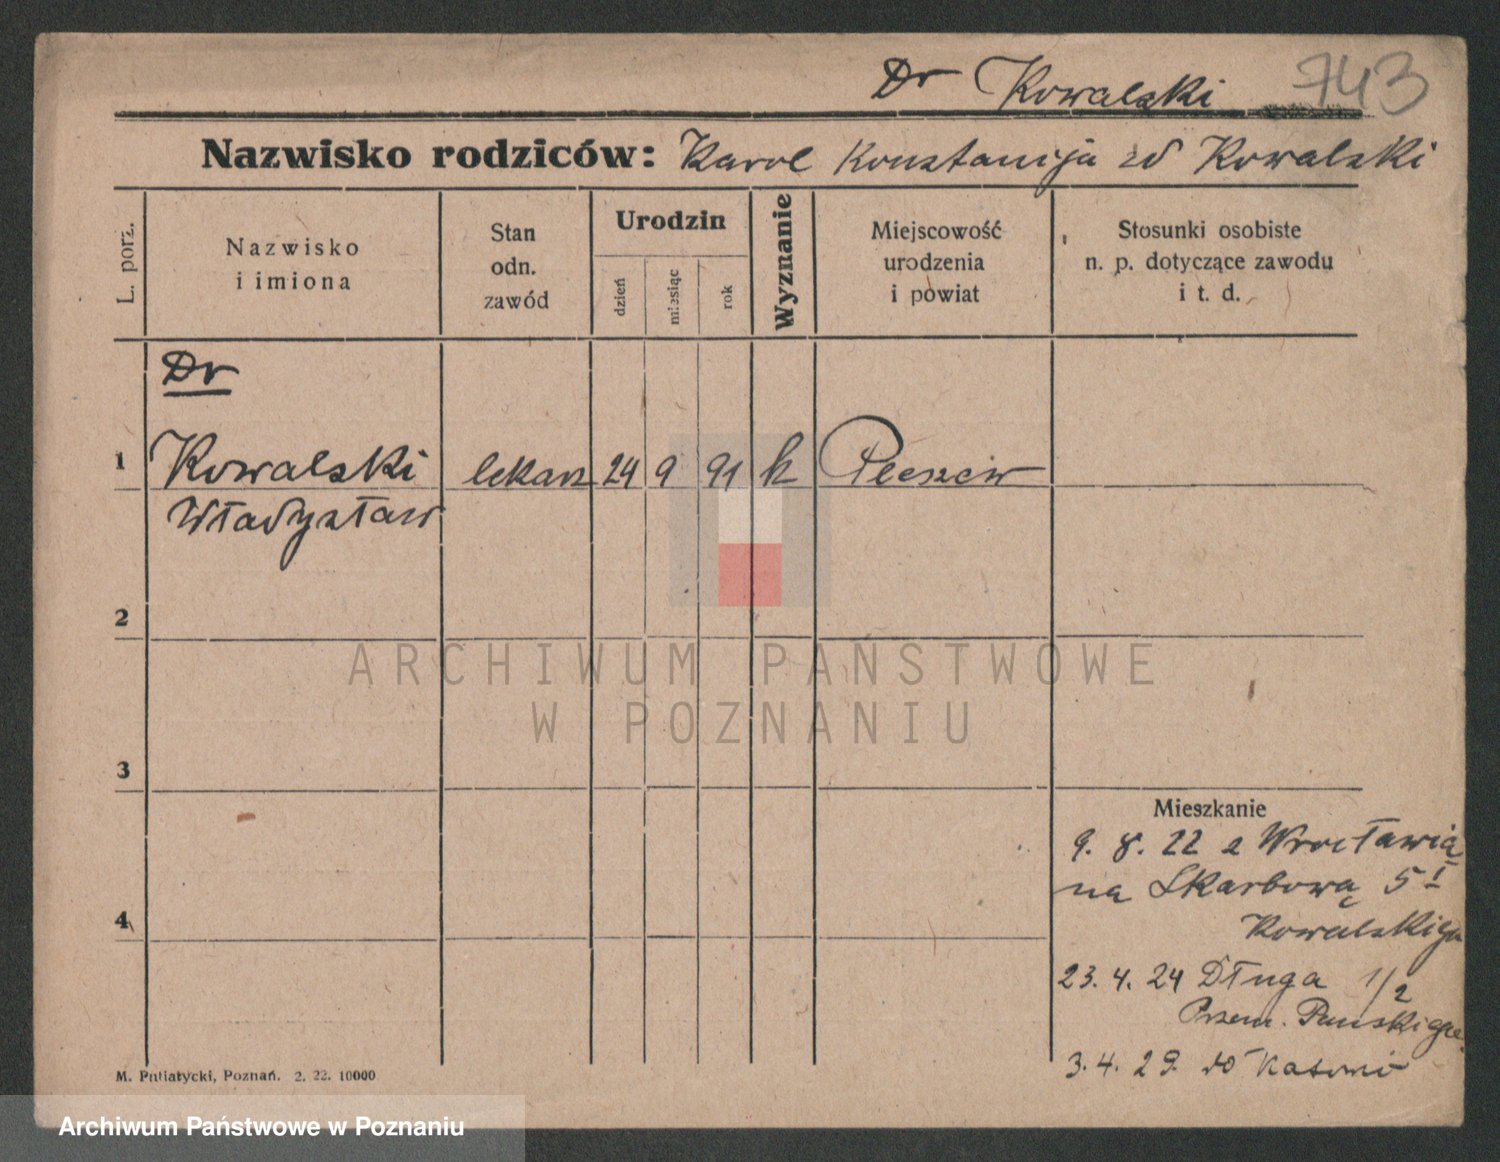 Dr Kowalski 743
Nazwisko rodziców: Karol Konstancja zd Kowalski
L. porz.
Nazwisko
i imiona
Stan
odn.
zawód
Urodzin
dzień
miesiąc
rok
Wyznanie
Miejscowość
urodzenia
i powiat
Stosunki osobiste
n. p. dotyczące zawodu
i t. d.
Dr
1 Kowalski lekarz 24 9 91 k Pleszew
Władysław
2
ARCHIWUM PAŃSTWOWE
W POZNANIU
3
Mieszkanie
9. 8. 22 z Wrocławia
na Skarbową 5 I
Kowalskiego
4
23. 4. 24 Długa 1/2
Przem.
3. 4. 29. do
M. Putiatycki, Poznań. 2. 22. 10000
Archiwum Państwowe w Poznaniu